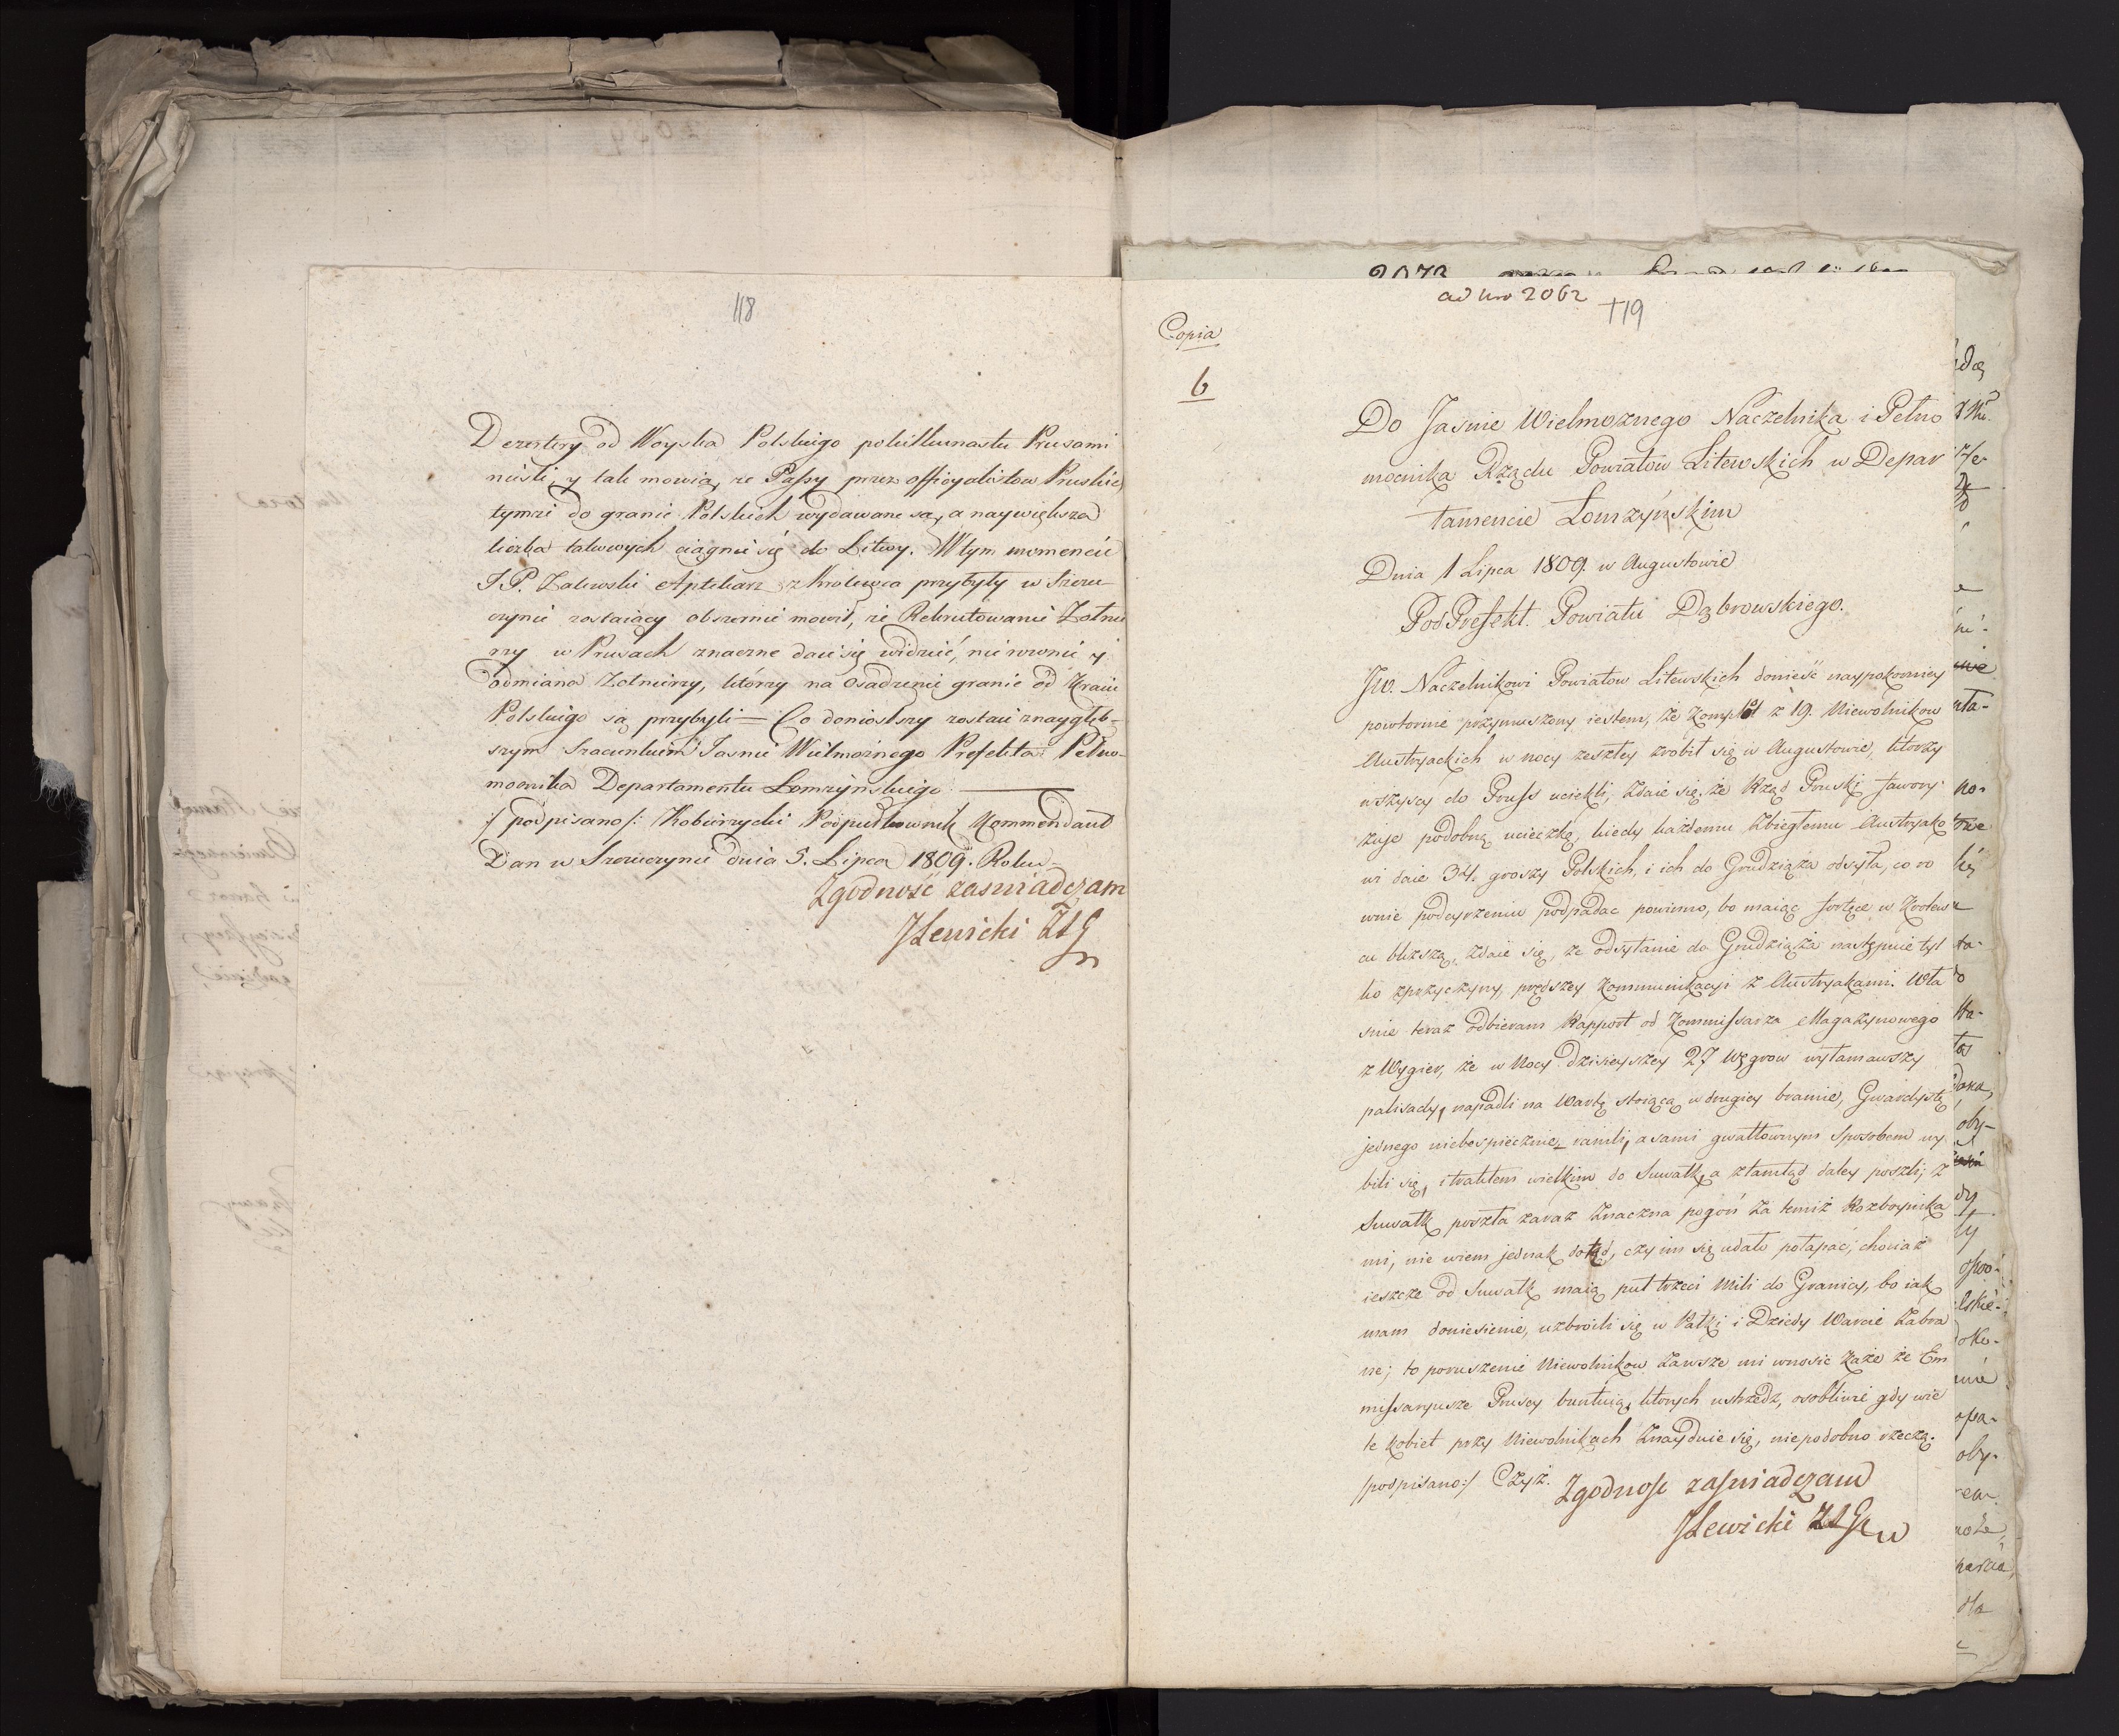 118
Dezertery od Woyska Polskiego po kilkunastu Prusami
nieśli, y tak mowią, że Passy przez officyalistow Pruskich
tymże do granic Polskich wydawane są, a naywiększa
liczba takowych ciągnie się do Litwy. W tym momencie
J.P. Zalewski Aptekarz z Krolewca przybyły w Szczu-
czynie zostaiący obszernie mowił, że Rekrutowanie Żołnie
rzy w Prusach znaczne daie się widzieć, nie rownie y
odmiana Żołnierzy, ktorzy na Osadzenie granic od Kraiu
Polskiego są przybyli — Co doniosłszy zostaie z naygłęb-
szym Szacunkiem Jasnie Wielmożnego Prefekta Pełno-
mocnika Departamentu Łomżyńskiego
/:podpisano/: Kobierzycki Podpułkownik Kommendant
Dan w Szczuczynie dnia 5. Lipca 1809. Roku
Zgodność zaswiadczam
JLewicki
2073
ad Nro 2062
119
Copia
6
Do Jasnie Wielmoznego Naczelnika i Pełno
mocnika Rządu Powiatow Litewskich w Depar
tamencie Łomzyńskim
Dnia 1 Lipca 1809. w Augustowie
PodPrefekt. Powiatu Dąbrowskiego.
JW. Naczelnikowi Powiatow Litewskich donieść naypokorniey
powtornie przymuszony iestem, że Komplot z 19. Niewolnikow
Austryackich w nocy zeszłey zrobił się w Augustowie, ktorzy
wszyscy do Pruss uciekli, Zdaie się, że Rząd Pruski fawory
zuje podobną ucieczkę, kiedy każdemu Zbiegłemu Austryako
wi daie 34. groszy Polskich, i ich do Grudziąża odsyła, co ro
wnie podeyrzeniu podpadac powinno, bo maiąc fortecę w Krolew
cu blizszą, zdaie się, że odsyłanie do Grudziąża następuie tyl
ko zprzyczyny, prędszey Kommunikacyi z Austryakami. Wła
snie teraz odbieram Rapport od Kommissarza Magazynowego
z Wygier, że w Nocy dzisieyszey 27 Węgrow wyłamawszy
palisady, napadli na Wartę stoiącą w drugiey bramie, Gwardystę
jednego niebespiecznie ranili, a sami gwałtownym sposobem wy
bili się, i traktem wielkim do Suwałk, a ztamtąd daley poszli; z
Suwałk poszła zaraz Znaczna pogoń Za temiż Rozboynika
mi, nie wiem jednak dotąd, czy im się udało połapać, chociaż
ieszcze od Suwałk maią puł trzeci Mili do Granicy, bo iak
mam doniesienie, uzbroili się w Pałki i Dzidy Warcie Zabra
ne; to poruszenie Niewolnikow Zawsze mi wnosic każe że Em
missaryusze Pruscy buntuią, ktorych ustrzedz, osobliwie gdy wie
le kobiet przy Niewolnikach Znayduie się, niepodobno rzeczą.
/podpisano:/ Czyż.
Zgodnosc zaswiadczam
JLewicki